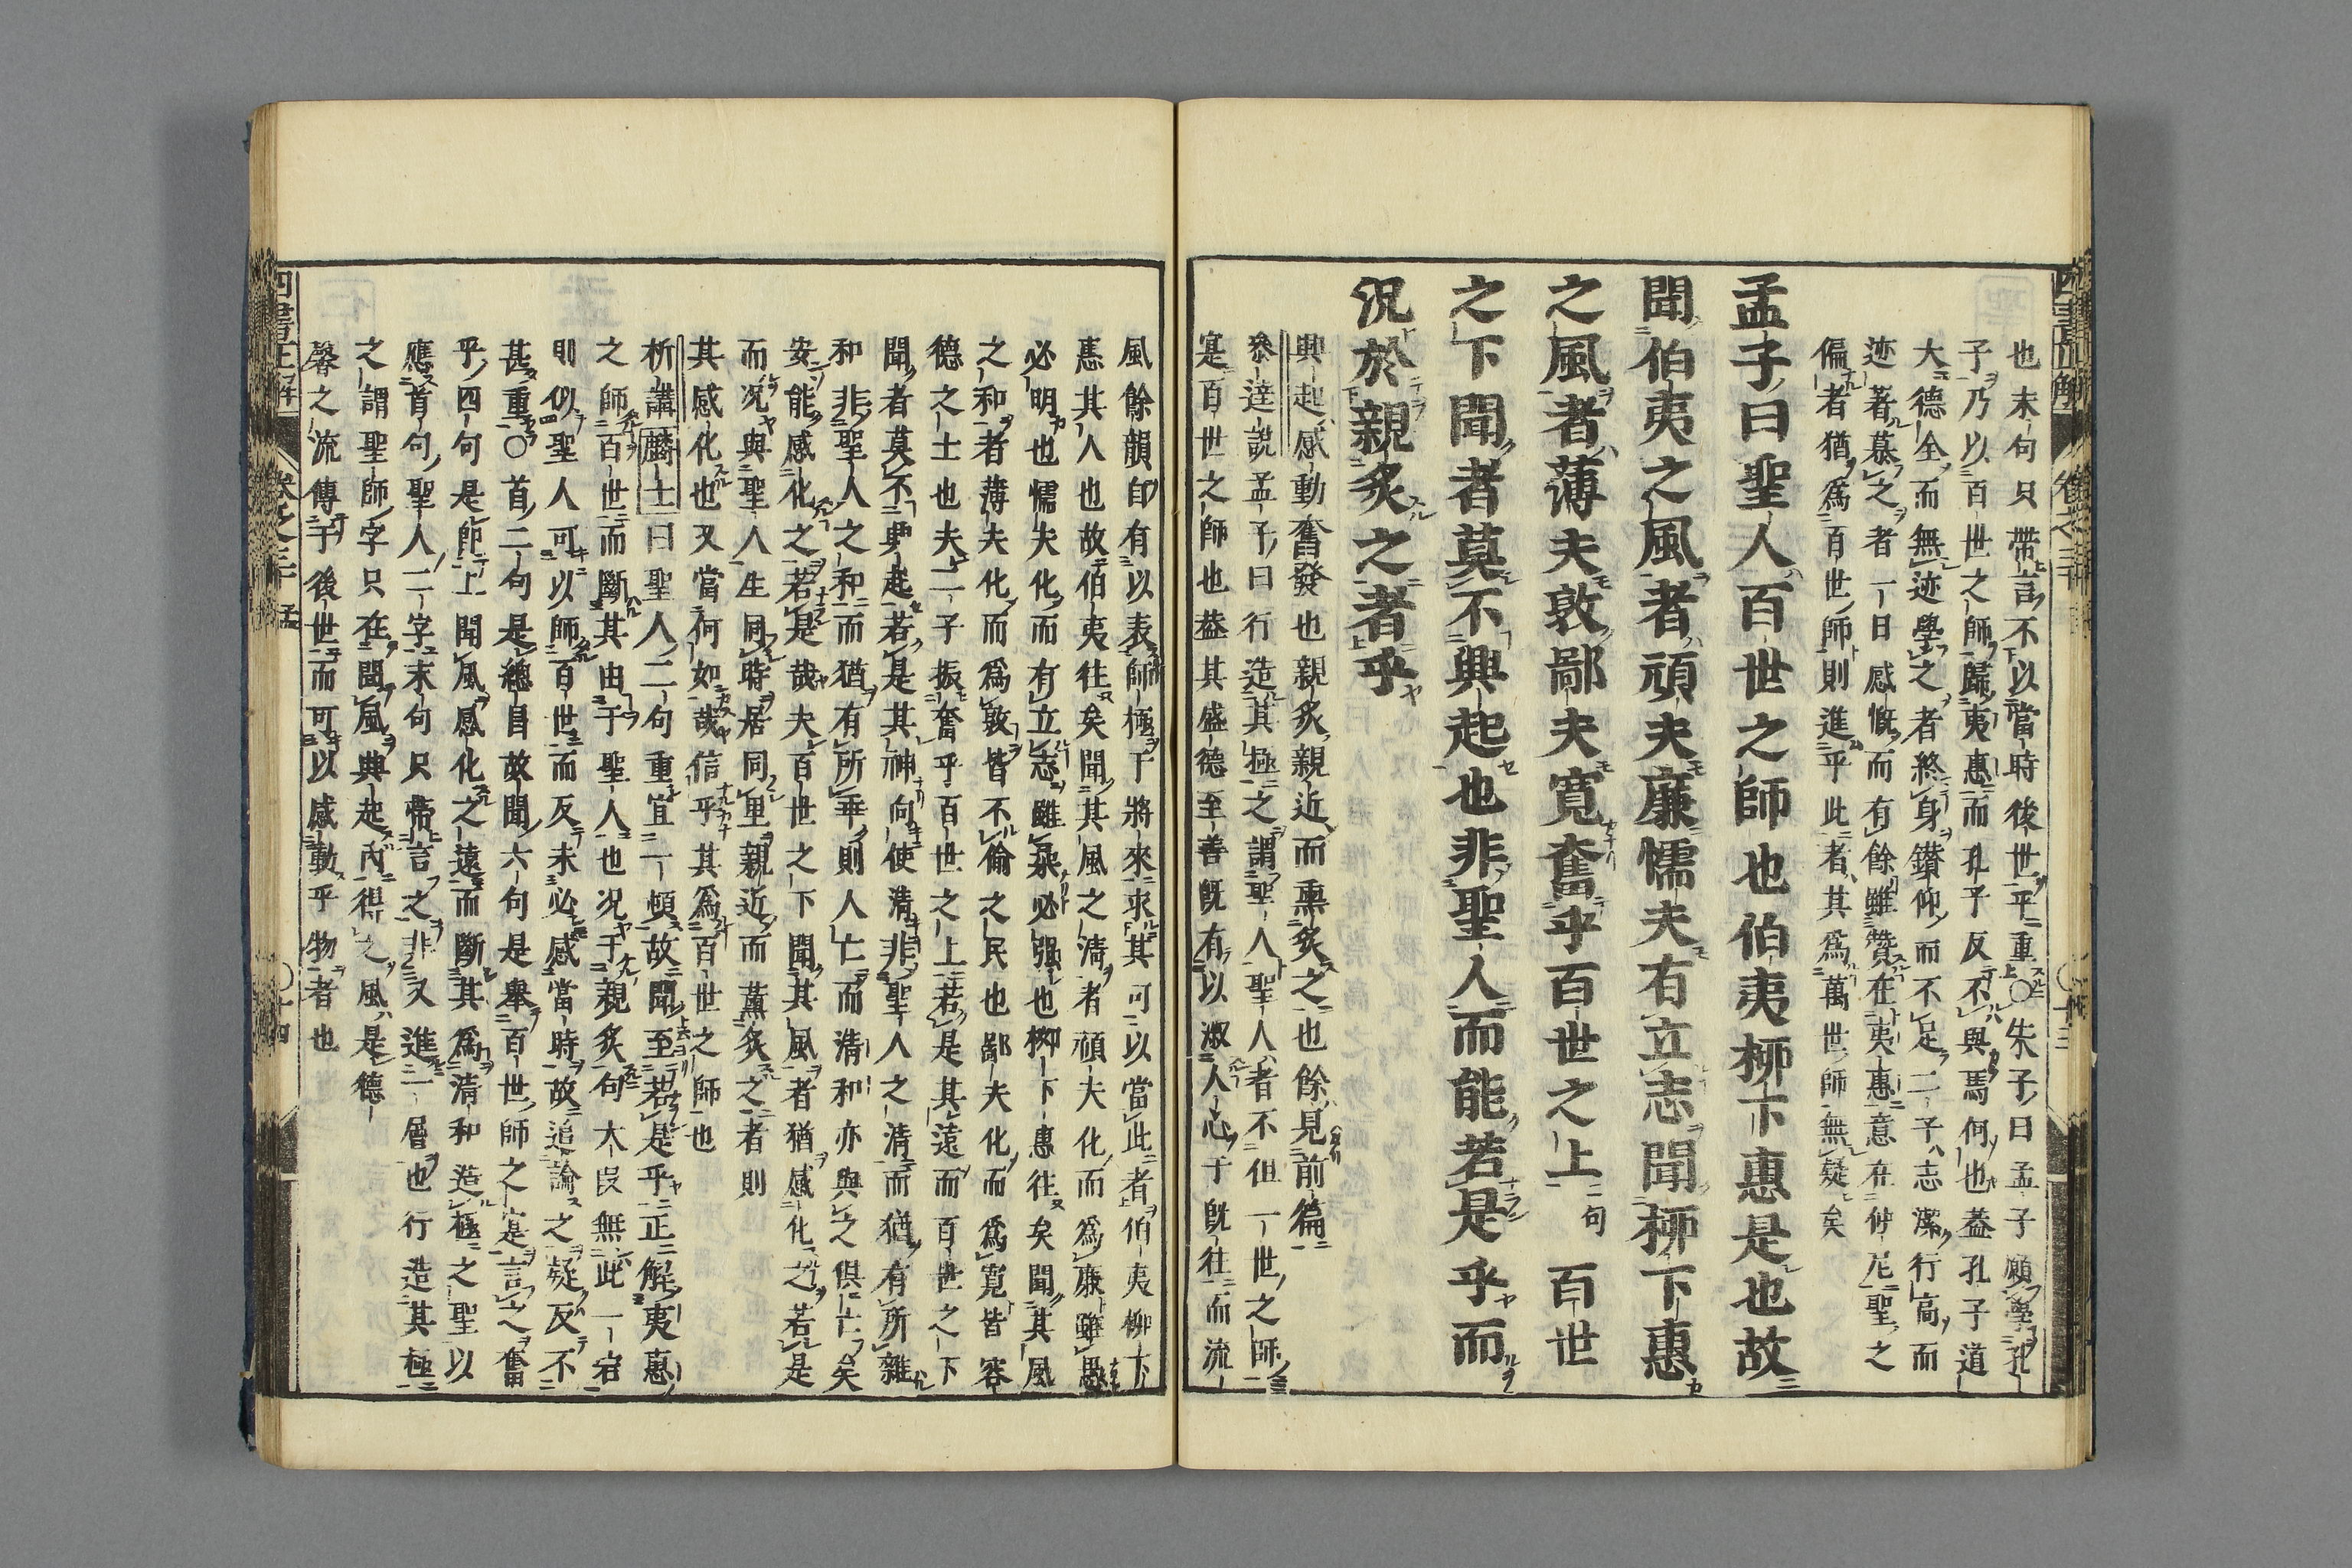 也末句只帶言不以當時後世平重○朱子曰孟子願學孔
子乃以百世之師歸夷惠而孔子反不與焉何也蓋孔子道
大德全而無迹學之者終身鑚仰而不足二子志潔行高而
迹著慕之者一日感慨而有餘雖贊在夷惠意在仲尼聖之
偏者猶爲百世師則進乎此者其爲萬世師無疑矣
孟子曰聖人百世之師也伯夷柳下惠是也故
聞伯夷之風者頑夫廉懦夫有立志聞柳下惠
之風者薄夫敦鄙夫寬奮乎百世之上句百世
之下聞者莫不興起也非聖人而能若是乎而
況於親炙之者乎
興起感動奮發也親炙親近而熏炙之也餘見前篇
叅達說孟子曰行造其極之謂聖人聖人者不但一世之師
寔百世之師也蓋其盛德至善旣有以淑人心于旣徃而流
風餘韻卽有以表師極于將來求其可以當此者伯夷柳下
惠其人也故伯夷徃矣聞其風之淸者頑夫化而爲廉雖愚
必明也懦夫化而有立志雖柔必强也柳下惠徃矣聞其風
之和者薄夫化而爲敦皆不偷之民也鄙夫化而爲寬皆容
德之士也夫二子振奮乎百世之上若是其遠而百世之下
聞者莫不興起若是其神向使淸非聖人之淸而猶有所雜
和非聖人之和而猶有所垂則人亡而淸和亦與之俱亡矣
安能感化之若是哉夫百世之下聞其風者猶感化之若是
而况與聖人生同時居同里親近而薰炙之者則
其感化也又當何如哉信乎其爲百世之師也
析講麟士曰聖人二句重宜一頓故聞至若是乎正解夷惠
之師百世而斷其由于聖人也况于親炙句大㫖無此一宕
則似聖人可以師百世而反未必感當時故追論之疑反不
甚重○首二句是總冒故聞六句是舉百世師之寔言之奮
乎四句是卽上聞風感化之遠而斷其爲淸和造極之聖以
應首句聖人二字末句只帶言之非又進一層也行造其極
之謂聖師字只在聞風興起內得之風是德
馨之流傳于後世而可以感動乎物者也
四書正解
卷之三十 孟
○十三
四書正解
卷之三十 孟
○十四